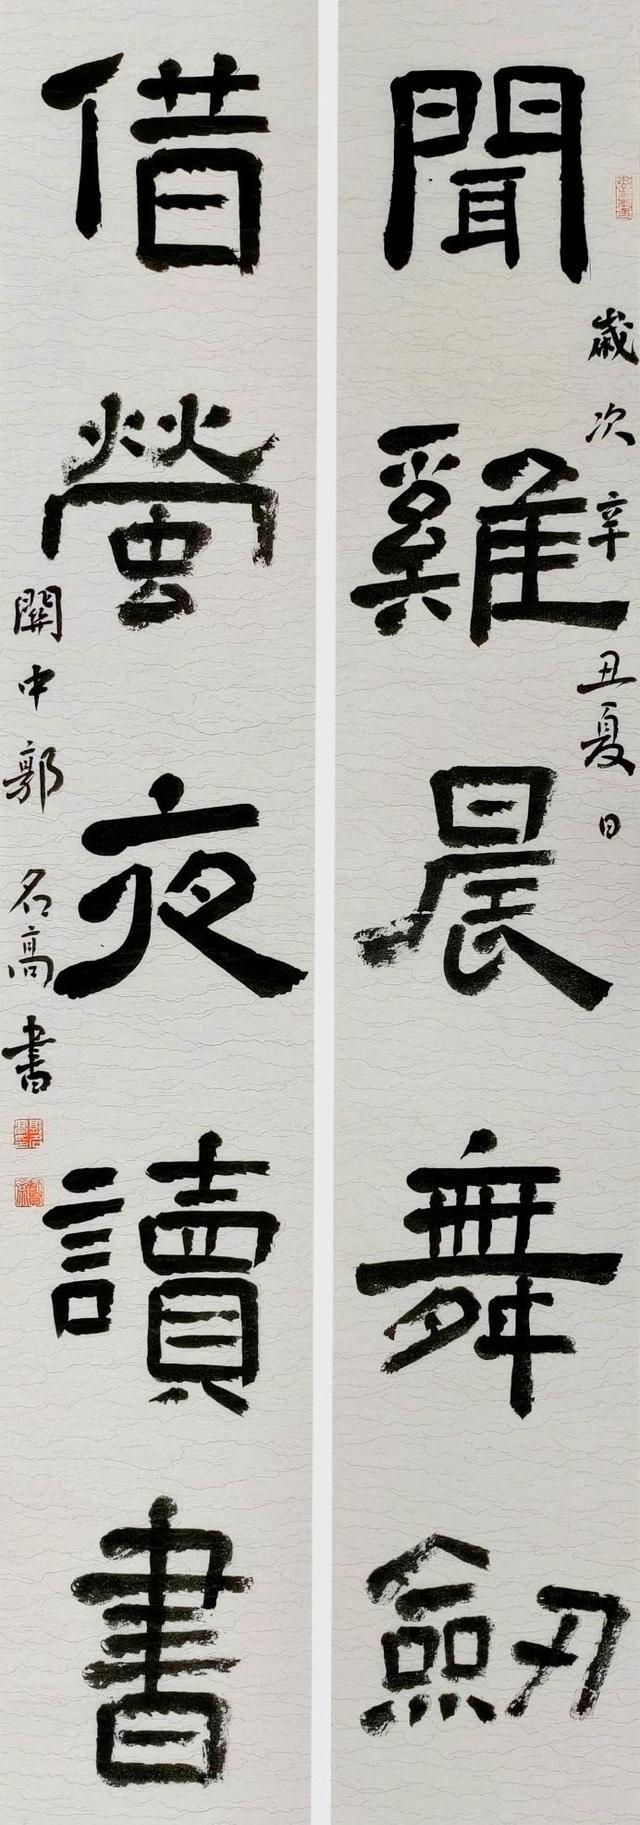 聞雞晨舞劒
歲次辛丑夏日
借螢夜讀書
關中郭名高書